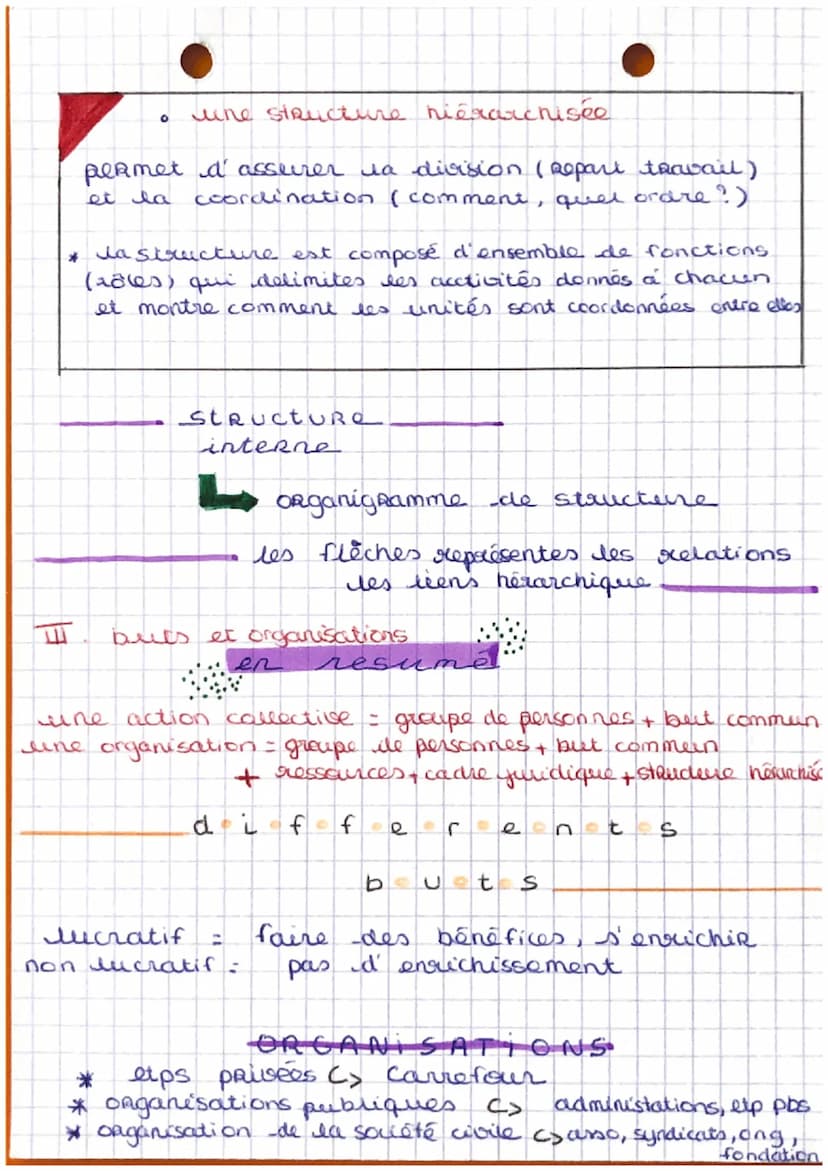 • une structure hiérarchisée
permet d'assurer la division (Repart travail)
et la coordination (comment, quel ordre?)
* la structure est composé d'ensemble de fonctions
(rôles) qui delimites les acctivités donnés à chacun
et montre comment les unités sont coordonnées entre elles
structure
interne
organigramme de structure
les flèches représentes les relations
les liens hérarchique
III. buts et organisations
en resumé
une action collective = groupe de personnes + but commun
une organisation = groupe de personnes + but commun
+ ressources + cadre juridique + structure hérarchisé
differents
buts
lucratif = faire des bénéfices, s'enrichir
non lucratif = pas d'enrichissement
ORGANISATIONS
* etps privées c> carrefour
* organisations publiques c> administations, etp pbs
* organisation de la société civile c> asso, syndicats, ong,
fondation